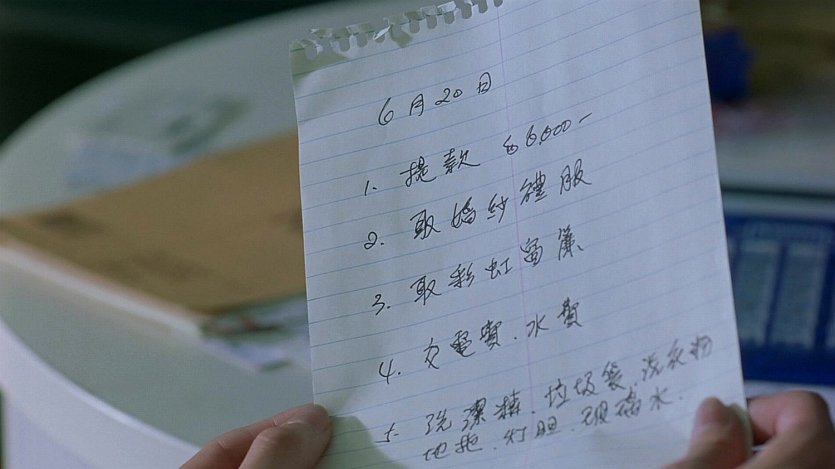 6月20日
1. 提款 $6,000-
2. 取婚纱禮服
3. 取彩虹窗簾
4. 交電費.水費
5. 洗潔精.垃圾袋.洗衣粉
地拖.灯胆.玻璃水.